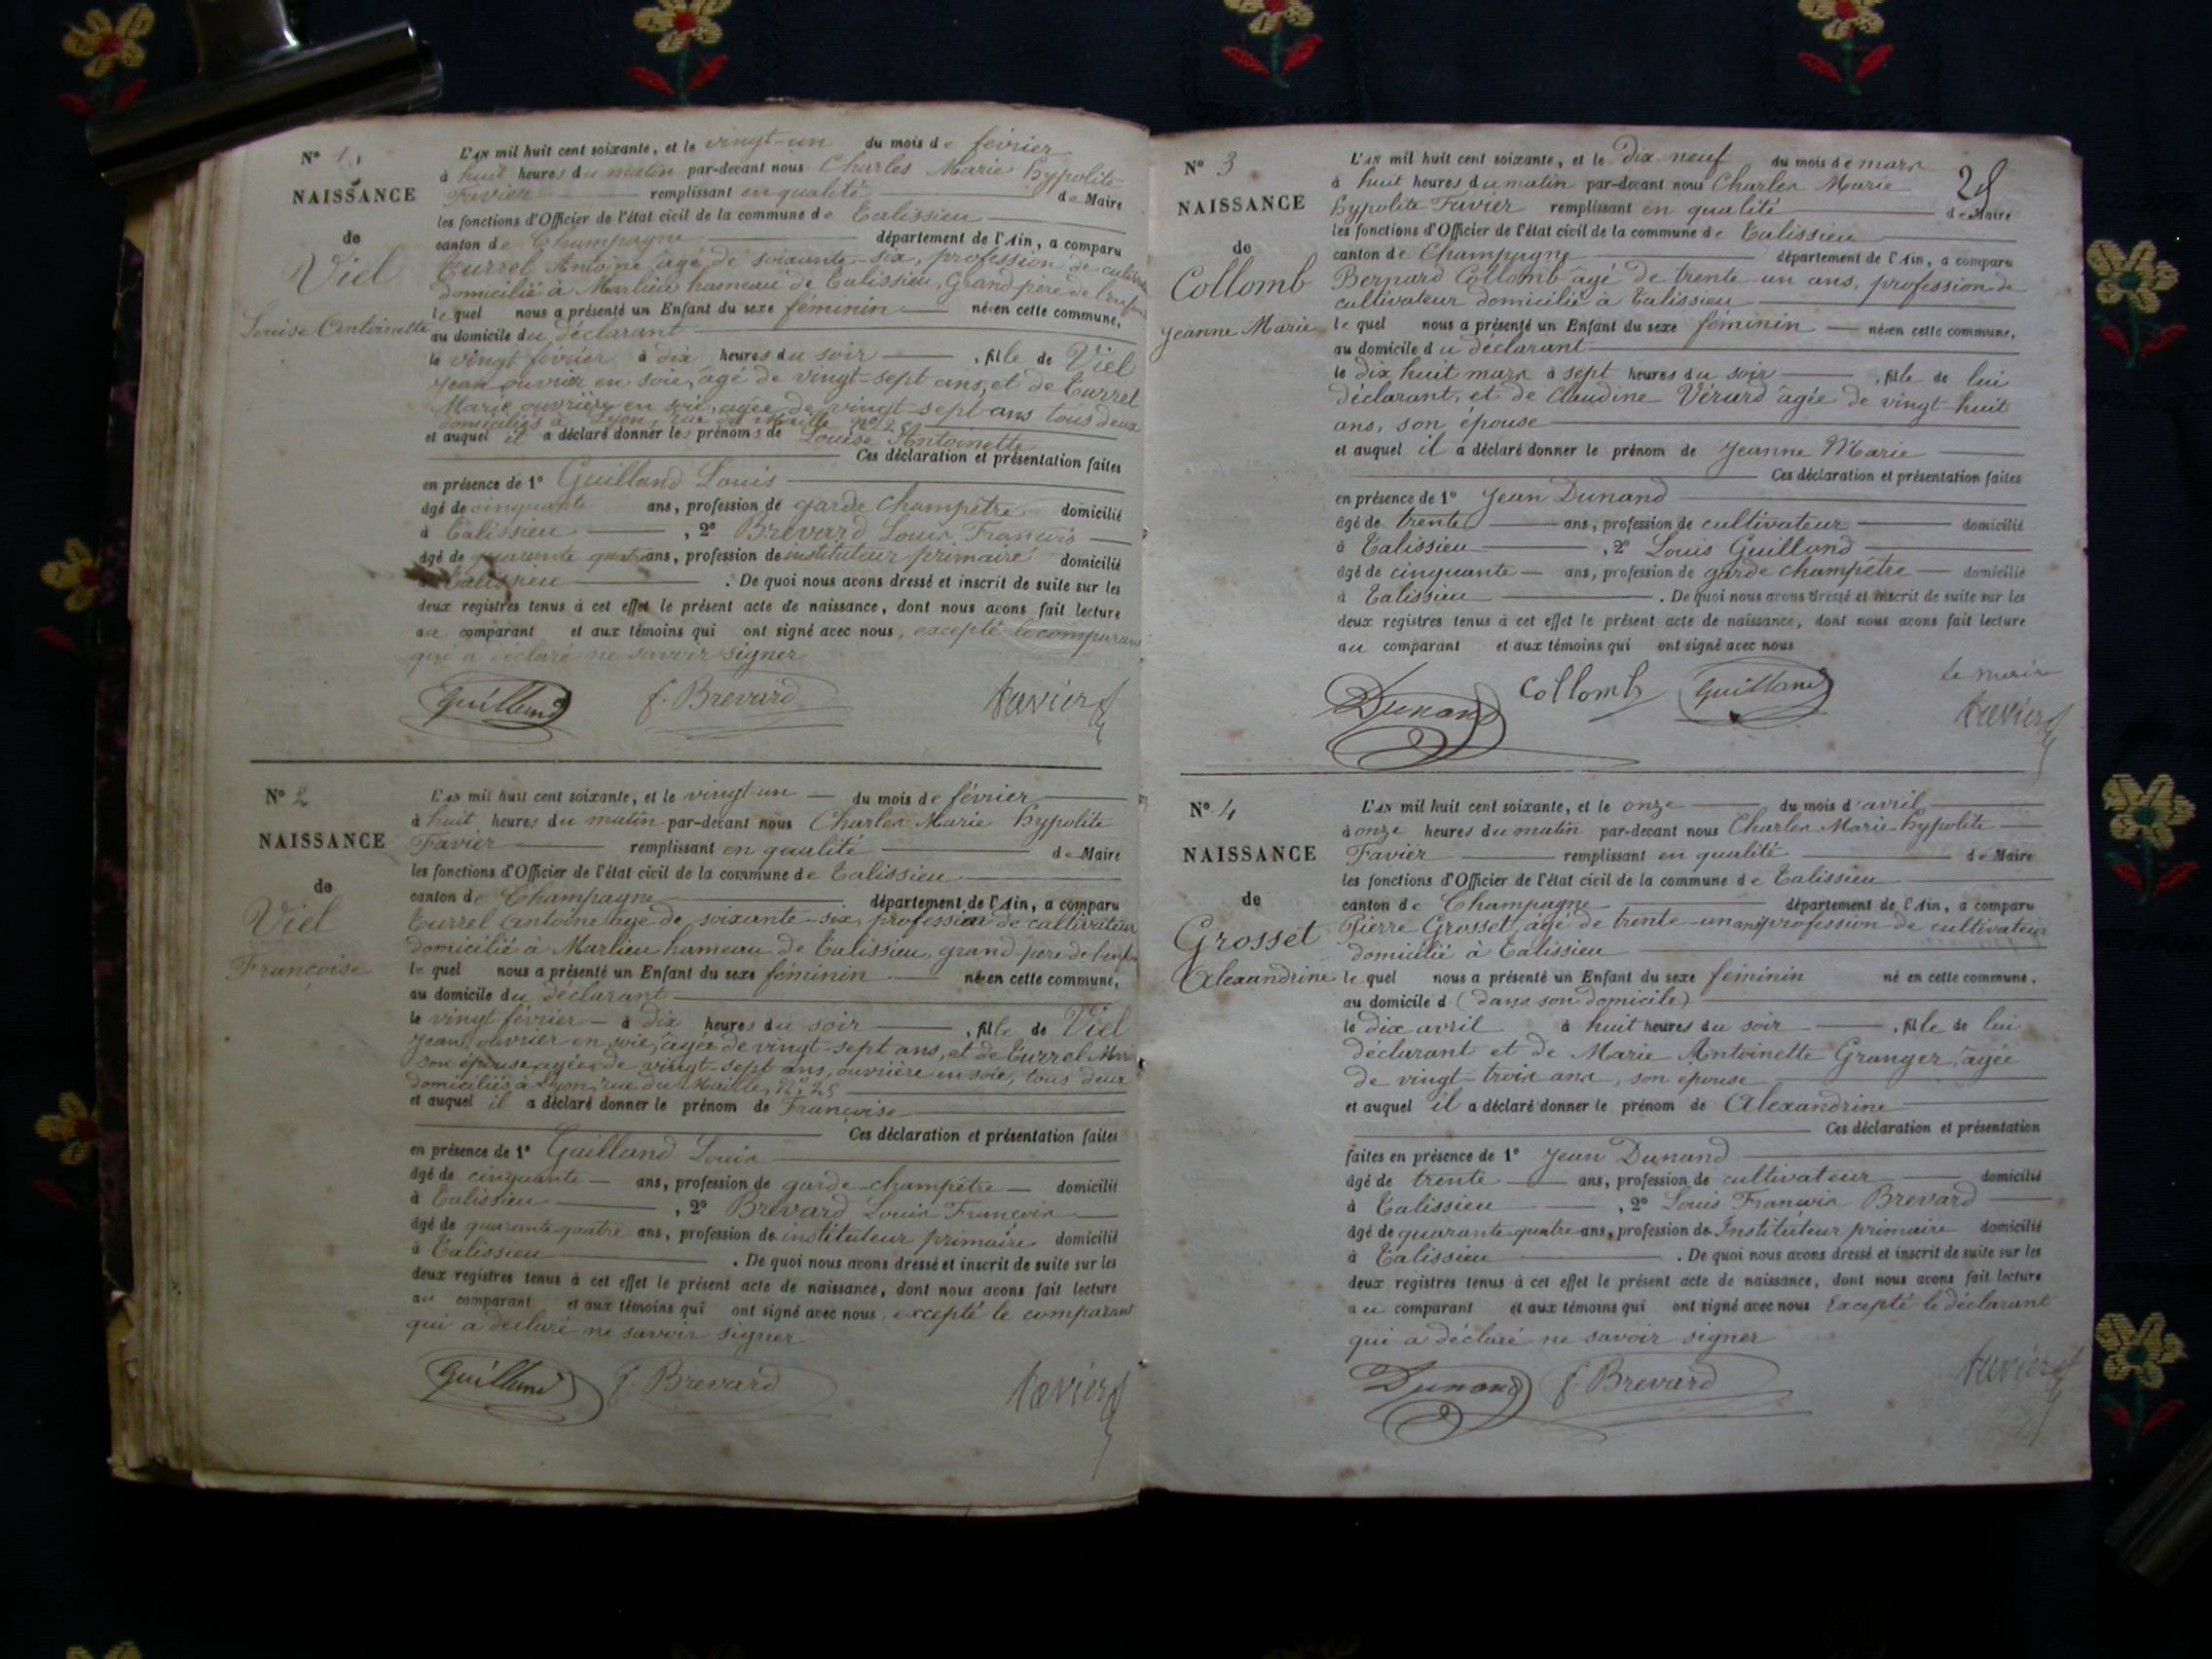 N° 1
NAISSANCE
de
Viel
Louise Antoinette
L'AN mil huit cent soixante, et le vingt-un du mois de février
à huit heures du matin par-devant nous Charles Marie hypolite
Favier remplissant en qualité de Maire
les fonctions d'Officier de l'état civil de la commune de Talissieu
canton de Champagne département de l'Ain, a comparu
Turrel Antoine âgé de soixante-six, profession de
domicilié à Marlieu hameau de Talissieu, Grand père de
le quel nous a présenté un Enfant du sexe féminin née en cette commune,
au domicile du déclarant
le vingt février à dix heures du soir , fille de Viel
Jean ouvrier en soie, âgé de vingt-sept ans, et de Turrel
Marie ouvrière en soie, agée de vingt-sept ans tous deux
domiciliés à Lyon, rue du n° 25
et auquel il a déclaré donner les prénoms de Louise Antoinette
Ces déclaration et présentation faites
en présence de 1° Guilland Louis
âgé de cinquante ans, profession de garde champêtre domicilié
à Talissieu , 2° Brevard Louis François
âgé de quarante quatre ans, profession de instituteur primaire domicilié
à Talissieu . De quoi nous avons dressé et inscrit de suite sur les
deux registres tenus à cet effet le présent acte de naissance, dont nous avons fait lecture
au comparant et aux témoins qui ont signé avec nous, excepté le comparant
qui a déclaré ne savoir signer
Guilland f. Brevard favier
N° 2
NAISSANCE
de
Viel
Françoise
L'AN mil huit cent soixante, et le vingt-un du mois de février
à huit heures du matin par-devant nous Charles Marie hypolite
Favier remplissant en qualité de Maire
les fonctions d'Officier de l'état civil de la commune de Talissieu
canton de Champagne département de l'Ain, a comparu
Turrel Antoine agé de soixante-six, profession de cultivateur
domicilié à Marlieu hameau de Talissieu, grand-père de
le quel nous a présenté un Enfant du sexe féminin née en cette commune,
au domicile du déclarant
le vingt février à dix heures du soir , fille de Viel
Jean, ouvrier en soie, agée de vingt-sept ans, et de Turrel
son épouse agée de vingt-sept ans, ouvrière en soie, tous deux
domiciliés à Lyon, rue du N° 25
et auquel il a déclaré donner le prénom de Françoise
Ces déclaration et présentation faites
en présence de 1° Guilland Louis
âgé de cinquante ans, profession de garde-champêtre domicilié
à Talissieu , 2° Brevard Louis François
âgé de quarante quatre ans, profession de instituteur primaire domicilié
à Talissieu . De quoi nous avons dressé et inscrit de suite sur les
deux registres tenus à cet effet le présent acte de naissance, dont nous avons fait lecture
au comparant et aux témoins qui ont signé avec nous, excepté le comparant
qui a déclaré ne savoir signer
Guilland f. Brevard favier
25
N° 3
NAISSANCE
de
Collomb
Jeanne Marie
L'AN mil huit cent soixante, et le Dix-neuf du mois de mars
à huit heures du matin par-devant nous Charles Marie
hypolite Favier remplissant en qualité de Maire
les fonctions d'Officier de l'état civil de la commune de Talissieu
canton de Champagne département de l'Ain, a comparu
Bernard Collomb âgé de trente un ans, profession de
cultivateur domicilié à Talissieu
le quel nous a présenté un Enfant du sexe féminin née en cette commune,
au domicile du déclarant
le dix huit mars à sept heures du soir , fille de lui
déclarant, et de Claudine Vérard âgée de vingt huit
ans, son épouse
et auquel il a déclaré donner le prénom de Jeanne Marie
Ces déclaration et présentation faites
en présence de 1° Jean Dunand
âgé de trente ans, profession de cultivateur domicilié
à Talissieu , 2° Louis Guilland
âgé de cinquante ans, profession de garde champêtre domicilié
à Talissieu . De quoi nous avons dressé et inscrit de suite sur les
deux registres tenus à cet effet le présent acte de naissance, dont nous avons fait lecture
au comparant et aux témoins qui ont signé avec nous
le maire
Dunand Collomb Guilland favier
N° 4
NAISSANCE
de
Grosset
Alexandrine
L'AN mil huit cent soixante, et le onze du mois d'avril
à onze heures du matin par-devant nous Charles Marie hypolite
Favier remplissant en qualité de Maire
les fonctions d'Officier de l'état civil de la commune de Talissieu
canton de Champagne département de l'Ain, a comparu
Pierre Grosset, âgé de trente-un ans, profession de cultivateur
domicilié à Talissieu
le quel nous a présenté un Enfant du sexe féminin né en cette commune,
au domicile d (dans son domicile)
le dix avril à huit heures du soir , fille de lui
déclarant et de Marie Antoinette Granger, agée
de vingt-trois ans, son épouse
et auquel il a déclaré donner le prénom de Alexandrine
Ces déclaration et présentation
faites en présence de 1° Jean Dunand
âgé de trente ans, profession de cultivateur domicilié
à Talissieu , 2° Louis François Brevard
âgé de quarante quatre ans, profession de Instituteur primaire domicilié
à Talissieu . De quoi nous avons dressé et inscrit de suite sur les
deux registres tenus à cet effet le présent acte de naissance, dont nous avons fait lecture
au comparant et aux témoins qui ont signé avec nous Excepté le déclarant
qui a déclaré ne savoir signer
Dunand f. Brevard favier